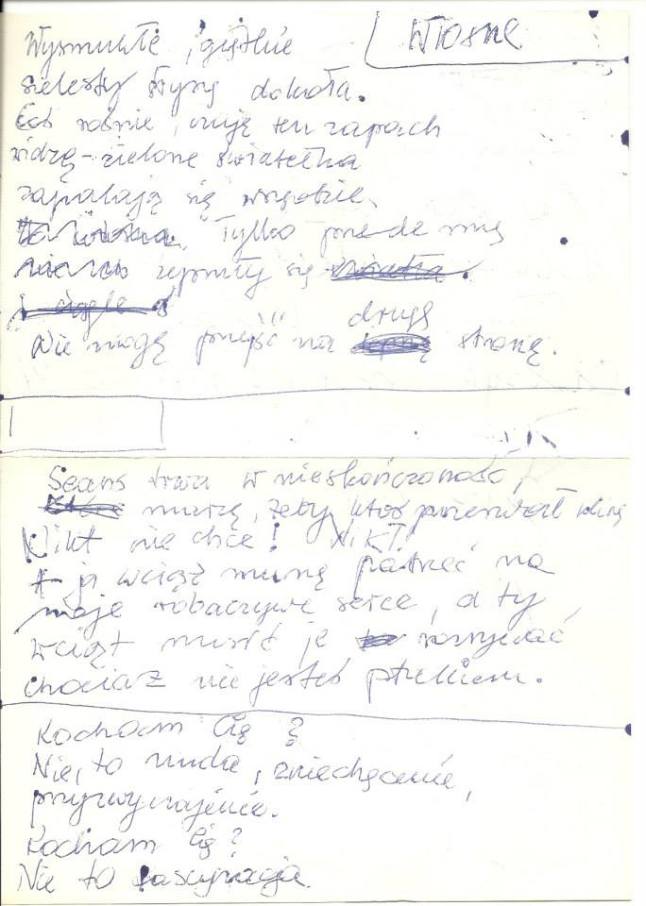 Wiosna
Wysmukłe, giętkie
szelesty słyszę dokoła.
Coś rośnie, czuję ten zapach
widzę - zielone światełka
zapalają się wszędzie.
Tylko przede mną
się
drugą
Nie mogę przejść na stronę.
Seans trwa w nieskończoność,
muszę, żeby ktoś przerwał
Nikt nie chce! NIKT!
A ja wciąż muszę patrzeć na
moje robaczywe serce, a ty
wciąż musisz je
chociaż nie jesteś ptakiem.
Kocham Cię?
Nie, to nuda, zniechęcenie,
przyzwyczajenie.
Kocham Cię?
Nie to fascynacja.